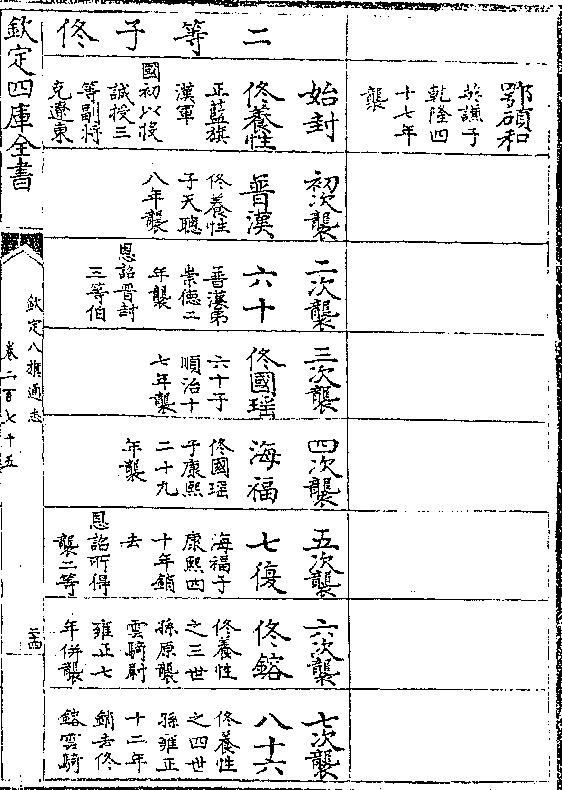 鄂碩和
英謙子
乾隆四
十七年
襲
二等子佟
始封
佟養性
正藍旗
漢軍
國初以投
誠授三
等副將
克遼東
初次襲
普漢
佟養性
子天聰
八年襲
二次襲
六十
普漢弟
崇德二
年襲
恩詔晉封
三等伯
三次襲
佟國瑶
六十子
順治十
七年襲
四次襲
海福
佟國瑶
子康熙
二十九
年襲
五次襲
七復
海福子
康熙四
十年銷
去
恩詔所得
襲二等
六次襲
佟鎔
佟養性
之三世
孫原襲
雲騎尉
雍正七
年併襲
七次襲
八十六
佟養性
之四世
孫雍正
十二年
銷去佟
鎔雲騎
欽定四庫全書
欽定八旗通志
卷二百七十五